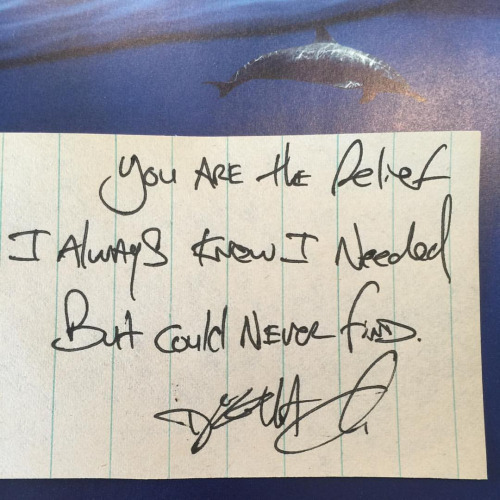 You ARE the Relief
I Always Knew I Needed
But Could NEVER find.